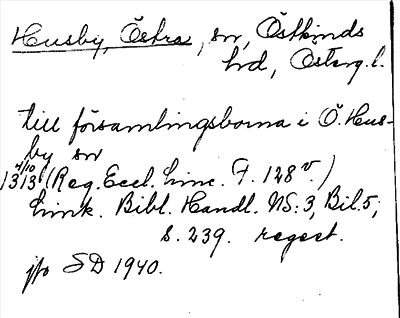 Husby, Östra, sn, Östkinds
hrd, Österg. l.
till församlingsborna i Ö. Hus-
by sn
4/10
1313 (Reg. Eccl. Linc. F. 128 v.)
Link. Bibl. Handl. NS: 3, Bil. 5,
s. 239. regest.
jfr SD 1940.